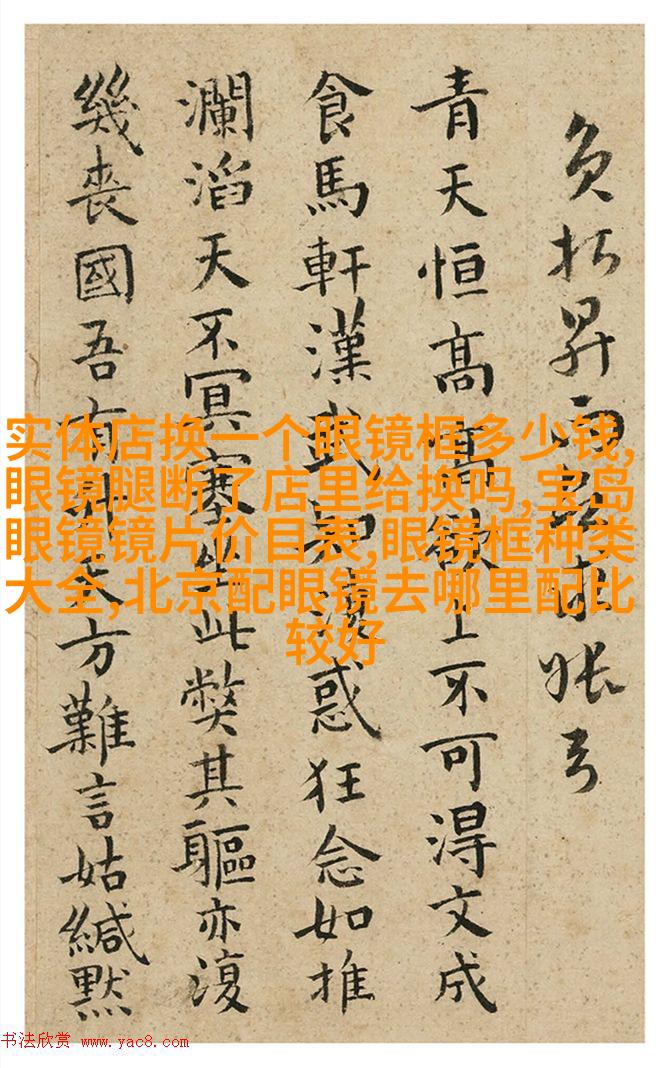 昇
青天恒高高欲上不可得文成
食馬軒漢武惑狂念如推
瀾滔天不冥塞坐此弊其軀亦復
幾喪國吾有昇天方難言姑緘默
实体店换一个眼镜框多少钱,
眼镜腿断了店里给换吗,宝岛
眼镜镜片价目表,眼镜框种类
大全,北京配眼镜去哪里配比
较好
书法欣赏 www.yac8.com